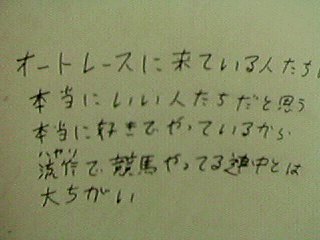 オートレースに来ている人たちは
本当にいい人たちだと思う
本当に好きでやっているから
ハヤリ
流行で競馬やってる連中とは
大ちがい